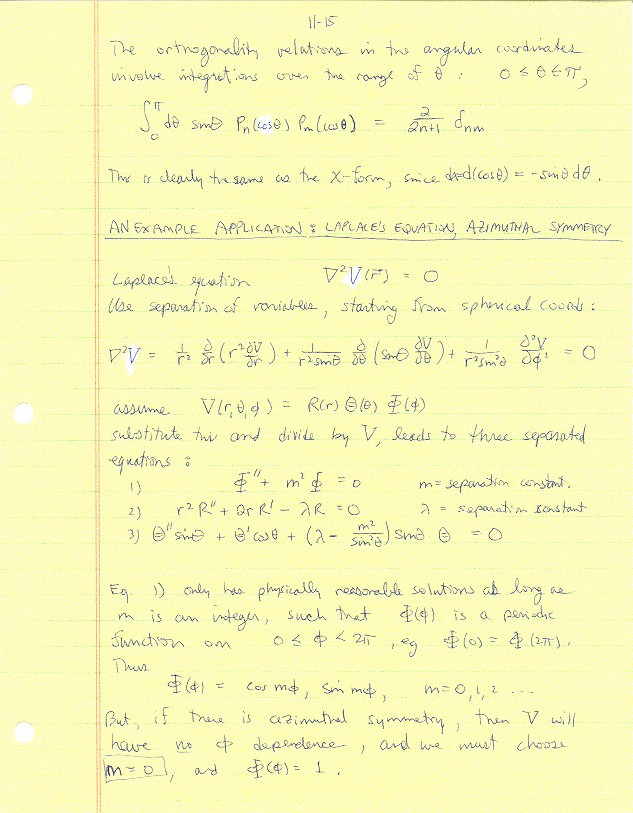 11-15
The orthogonality relations in the angular coordinates
involve integrations over the range of θ : 0 ≤ θ ≤ π,
∫₀^π dθ sinθ Pn(cosθ) Pm(cosθ) = 2/(2n+1) δnm
This is clearly the same as the x-form, since dx=d(cosθ) = -sinθ dθ.
AN EXAMPLE APPLICATION : LAPLACE'S EQUATION, AZIMUTHAL SYMMETRY
Laplace's equation ∇²V(r⃗) = 0
Use separation of variables, starting from spherical coords :
∇²V = 1/r² ∂/∂r (r² ∂V/∂r) + 1/(r² sinθ) ∂/∂θ (sinθ ∂V/∂θ) + 1/(r² sin²θ) ∂²V/∂ϕ² = 0
assume V(r,θ,ϕ) = R(r) Θ(θ) Φ(ϕ)
substitute this and divide by V, leads to three separated
equations :
1) Φ'' + m² Φ = 0 m = separation constant.
2) r² R'' + 2r R' - λR = 0 λ = separation constant
3) Θ'' sinθ + Θ' cosθ + (λ - m²/sin²θ) sinθ Θ = 0
Eq 1) only has physically reasonable solutions as long as
m is an integer, such that Φ(ϕ) is a periodic
function on 0 ≤ ϕ < 2π, eg Φ(0) = Φ(2π).
Thus
Φ(ϕ) = cos mϕ, sin mϕ, m=0,1,2 ...
But, if there is azimuthal symmetry, then V will
have no ϕ dependence, and we must choose
m = 0, and Φ(ϕ) = 1.